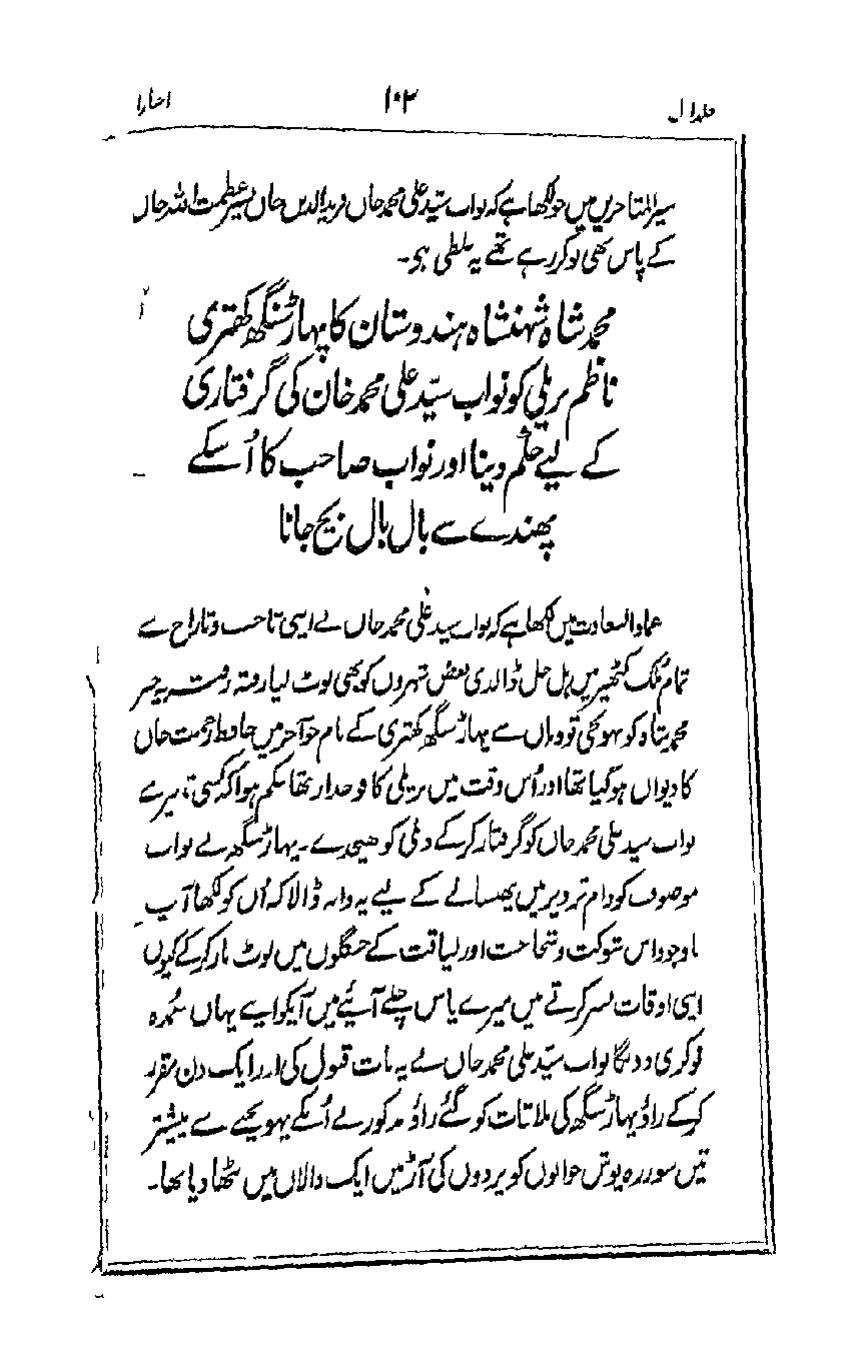 جلد اول ۱۰۳ اخبارا
سیر المتاخرین میں جو لکھا ہے کہ نواب سید علی محمد خاں فرید الدین خاں پسر عظمت اللہ خاں
کے پاس بھی نوکر رہے تھے یہ غلطی ہی۔
محمد شاہ شہنشاہ ہندوستان کا پہاڑ سنگھ کھتری
ناظم بریلی کو نواب سیّد علی محمد خان کی گرفتاری
کے لیے حکم دینا اور نواب صاحب کا اُسکے
پھندے سے بال بال بچ جانا
عماد السعادت میں لکھا ہے کہ نواب سید علی محمد خاں نے ایسی تاخت و تاراج سے
تمام ملک کٹھیر میں ہل چل ڈالدی بعض شہروں کو بھی لوٹ لیا رفتہ رفتہ یہ خبر
محمد شاہ کو پہونچی تو وہاں سے پہاڑ سنگھ کھتری کے نام جو آخر میں حافظ رحمت خاں
کا دیوان ہو گیا تھا اور اُس وقت میں بریلی کا فوجدار تھا حکم ہوا کہ کسی تدبیر سے
نواب سید علی محمد خاں کو گرفتار کر کے دلی کو بھیجدے۔ پہاڑ سنگھ نے نواب
موصوف کو دام تزویر میں پھسانے کے لیے یہ دانہ ڈالا کہ اُں کو لکھا آپ
باوجود اس شوکت و شجاعت اور لیاقت کے جنگلوں میں لوٹ مار کر کے کیوں
اپنی اوقات بسر کرتے ہیں میرے پاس چلے آئیے میں آپکو اپنے یہاں عمدہ
نوکری دونگا نواب سیّد علی محمد خاں نے یہ بات قبول کی اور ایک دن مقرر
کر کے راؤ پہاڑ سنگھ کی ملاقات کو گئے راؤ مذکور نے اُسکے پہونچنے سے پیشتر
تین سو زرہ پوش جوانوں کو پردوں کی آڑ میں ایک دالان میں بٹھا دیا تھا۔